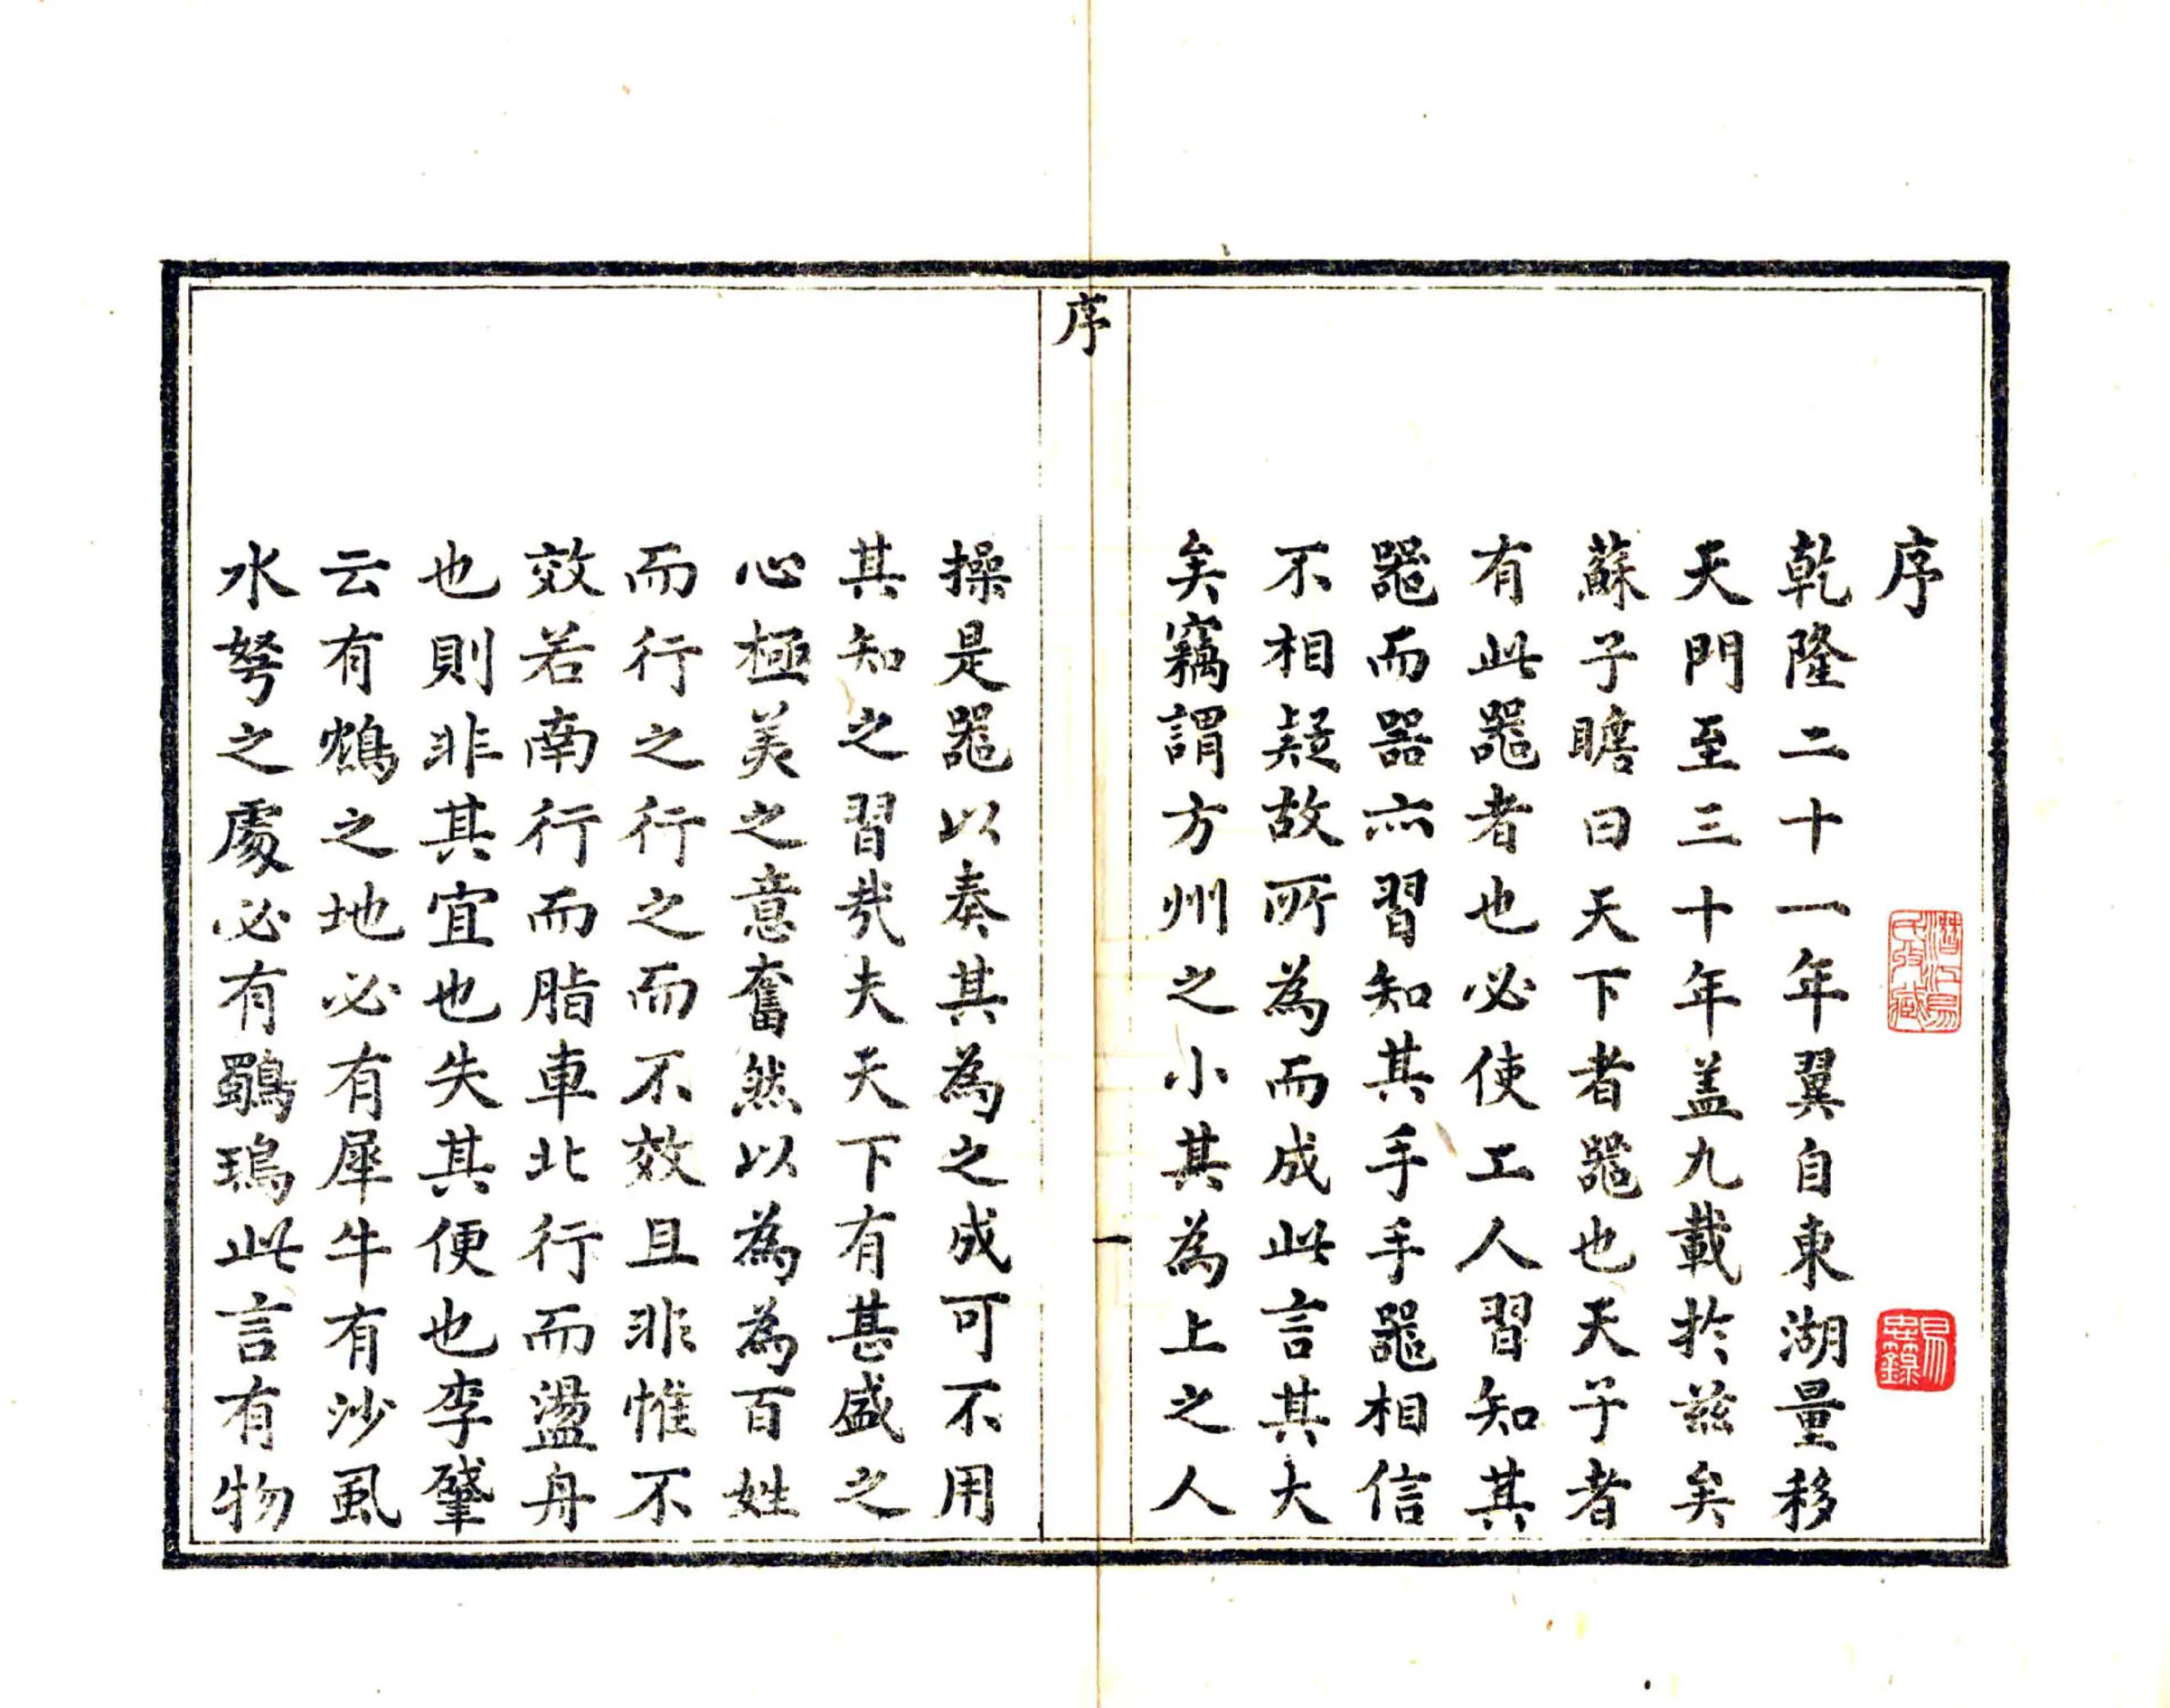 序
潛江易氏收藏
易忠籙
乾隆二十一年翼自東湖量移
天門至三十年盖九載於茲矣
蘇子瞻曰天下者噐也天子者
有此噐者也必使工人習知其
噐而器亦習知其手手噐相信
不相疑故所為而成此言其大
矣竊謂方州之小其為上之人
序
一
操是噐以奏其為之成可不用
其知之習㢤夫天下有甚盛之
心極美之意奮然以為為百姓
而行之行之而不效且非惟不
效若南行而脂車北行而盪舟
也則非其宜也失其便也李肇
云有鴆之地必有犀牛有沙虱
水弩之處必有鸀鳿此言有物